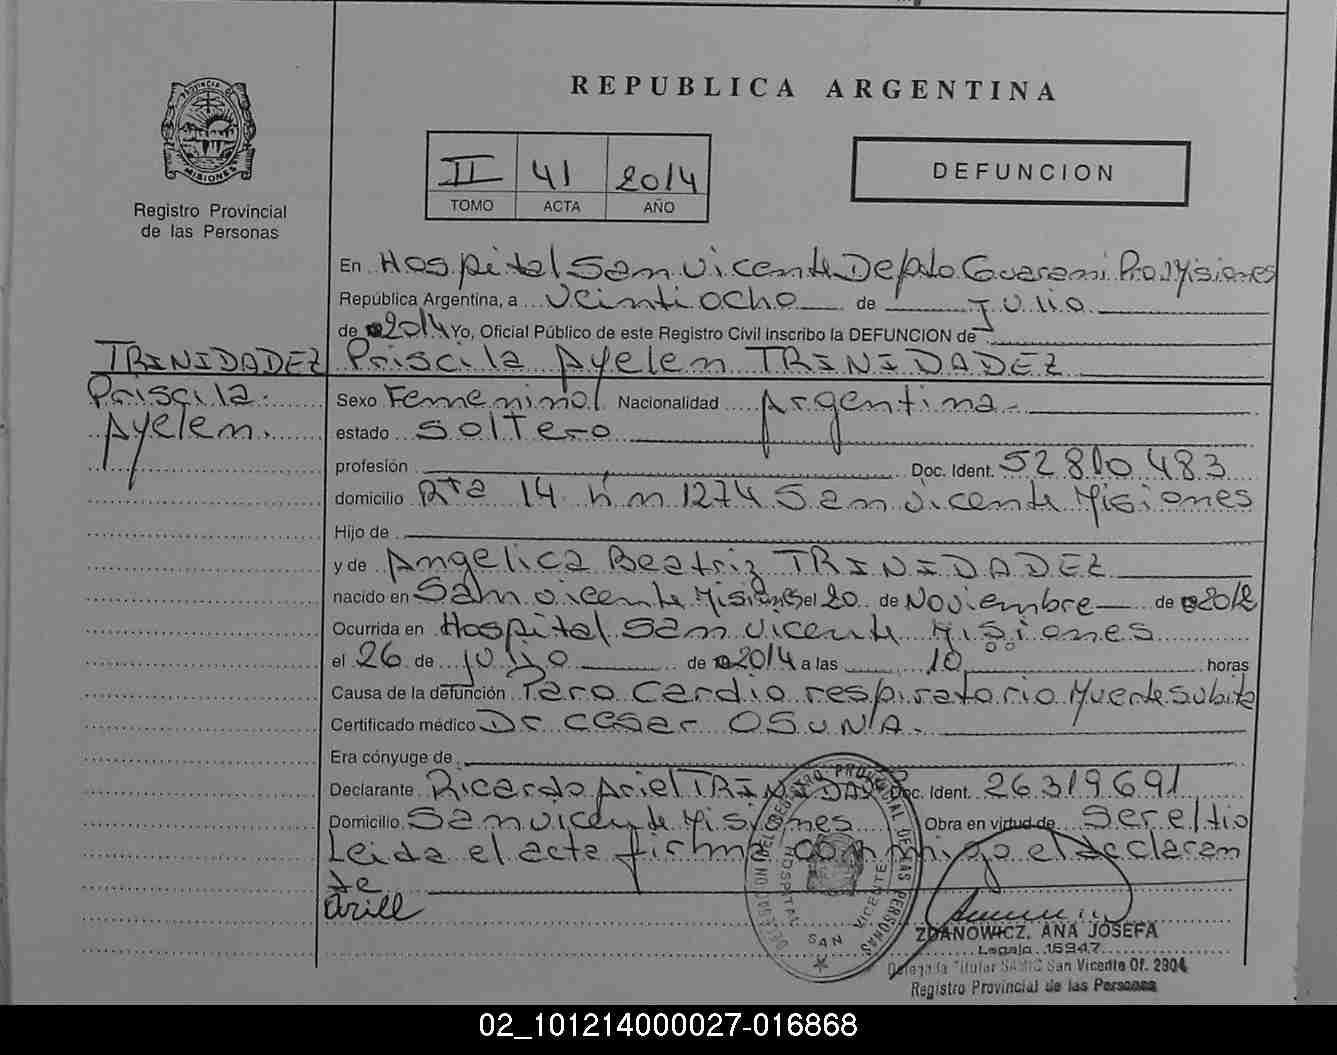 REPUBLICA ARGENTINA
PROVINCIA DE MISIONES
Registro Provincial
de las Personas
II 41 2014
TOMO ACTA AÑO
DEFUNCION
En Hospital San Vicente Depto Guarani Pro. Misiones
República Argentina, a veintiocho de Julio
de 2014 Yo, Oficial Público de este Registro Civil inscribo la DEFUNCION de
TRINIDADEZ Priscila Ayelen TRINIDADEZ
Priscila
Ayelen.
Sexo Femenino Nacionalidad Argentina
estado soltero
profesión Doc. Ident. 52810483
domicilio Rta 14 km 1274 San Vicente Misiones
Hijo de
y de Angelica Beatriz TRINIDADEZ
nacido en San Vicente Misiones el 20 de Noviembre de 2012
Ocurrida en Hospital San Vicente Misiones
el 26 de julio de 2014 a las 10 horas
Causa de la defunción Paro Cardio respiratorio Muerte subita
Certificado médico Dr Cesar OSUNA.
Era cónyuge de
Declarante Ricardo Ariel Doc. Ident. 26319691
Domicilio San Vicente Misiones Obra en virtud de Ser el tio
Leida el acta firma conmigo el declaran
te
DELEGACION DEL REGISTRO PROVINCIAL DE LAS PERSONAS
HOSPITAL SAN VICENTE
ZDANOWICZ, ANA JOSEFA
Legajo 16947
Delegada Titular SAMIC San Vicente Of. 2904
Registro Provincial de las Personas
02_101214000027-016868